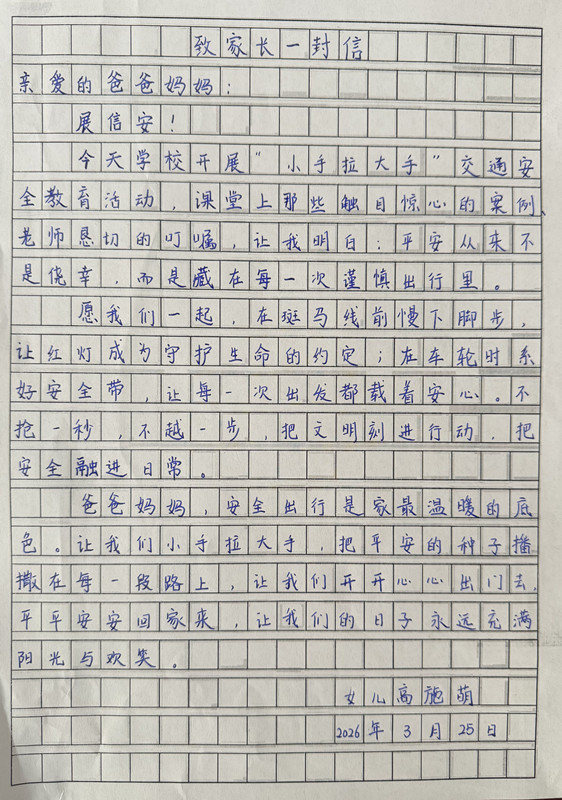 致家长一封信
亲爱的爸爸妈妈：
展信安！
今天学校开展“小手拉大手”交通安
全教育活动，课堂上那些触目惊心的案例、
老师恳切的叮嘱，让我明白：平安从来不
是侥幸，而是藏在每一次谨慎出行里。
愿我们一起，在斑马线前慢下脚步，
让红灯成为守护生命的约定；在车轮时系
好安全带，让每一次出发都载着安心。不
抢一秒，不越一步，把文明刻进行动，把
安全融进日常。
爸爸妈妈，安全出行是家最温暖的底
色。让我们小手拉大手，把平安的种子播
撒在每一段路上，让我们开开心心出门去，
平平安安回家来，让我们的日子永远充满
阳光与欢笑。
女儿高施萌
2026年3月25日